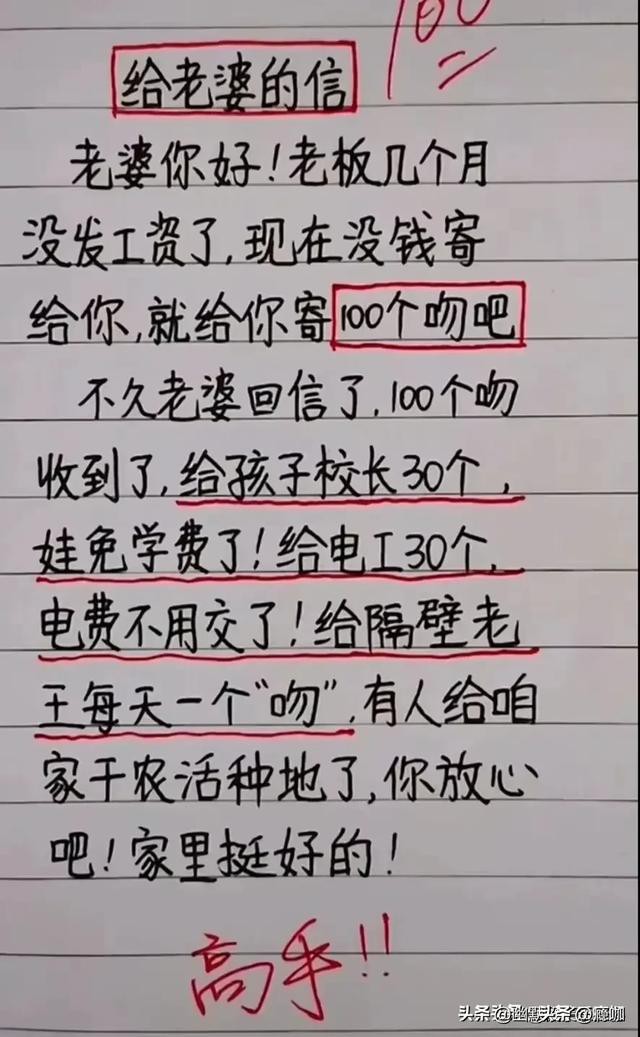 100
给老婆的信
老婆你好!老板几个月
没发工资了,现在没钱寄
给你,就给你寄100个吻吧
不久老婆回信了,100个吻
收到了,给孩子校长30个,
娃免学费了!给电工30个,
电费不用交了!给隔壁老
王每天一个“吻”,有人给咱
家干农活种地了,你放心
吧!家里挺好的!
高手!!